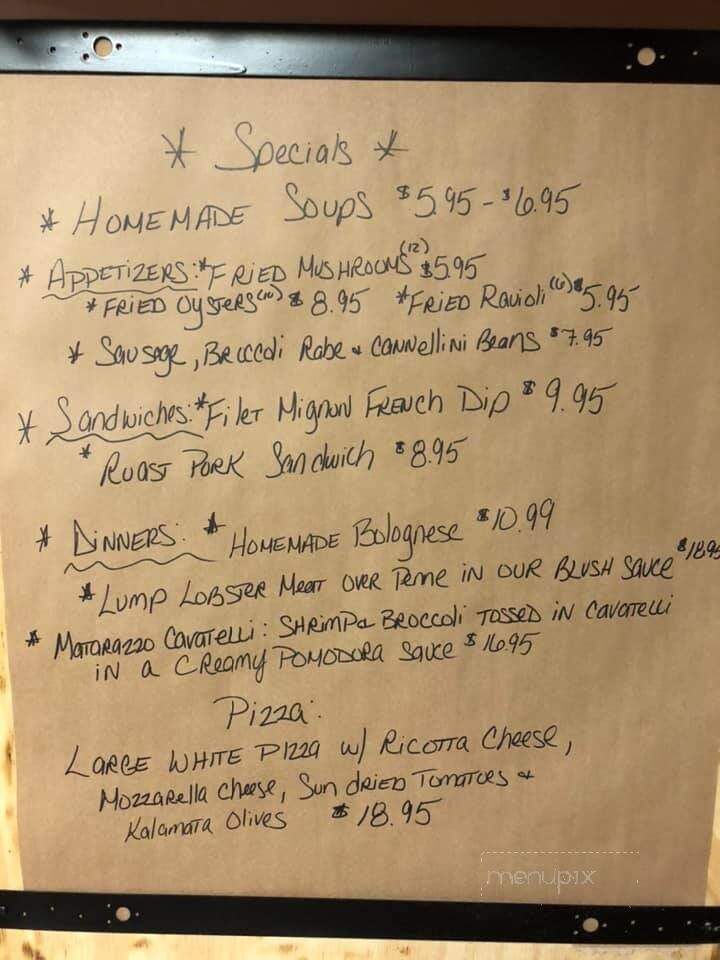 * Specials *
* HOMEMADE SOUPS $5.95 - $6.95
* APPETIZERS: *FRIED MUSHROOMS (12) $5.95
*FRIED OYSTERS (10) $8.95 *FRIED Ravioli (6) $5.95
* Sausage, BROCCOLI Rabe & CANNELLINI Beans $7.95
* Sandwiches: *Filet Mignon FRENCH Dip $9.95
* ROAST PORK Sandwich $8.95
* DINNERS: * HOMEMADE Bolognese $10.99
* LUMP LOBSTER MEAT OVER Penne IN OUR BLUSH SAUCE $18.95
* MATARAZZO CAVATELLI: SHRIMP & BROCCOLI TOSSED IN CAVATELLI
IN a CREAMY POMODORA SAUCE $16.95
Pizza:
LARGE WHITE PIZZA w/ RICOTTA Cheese,
MOZZARELLA Cheese, Sun DRIED TOMATOES &
Kalamata Olives $18.95
menupix